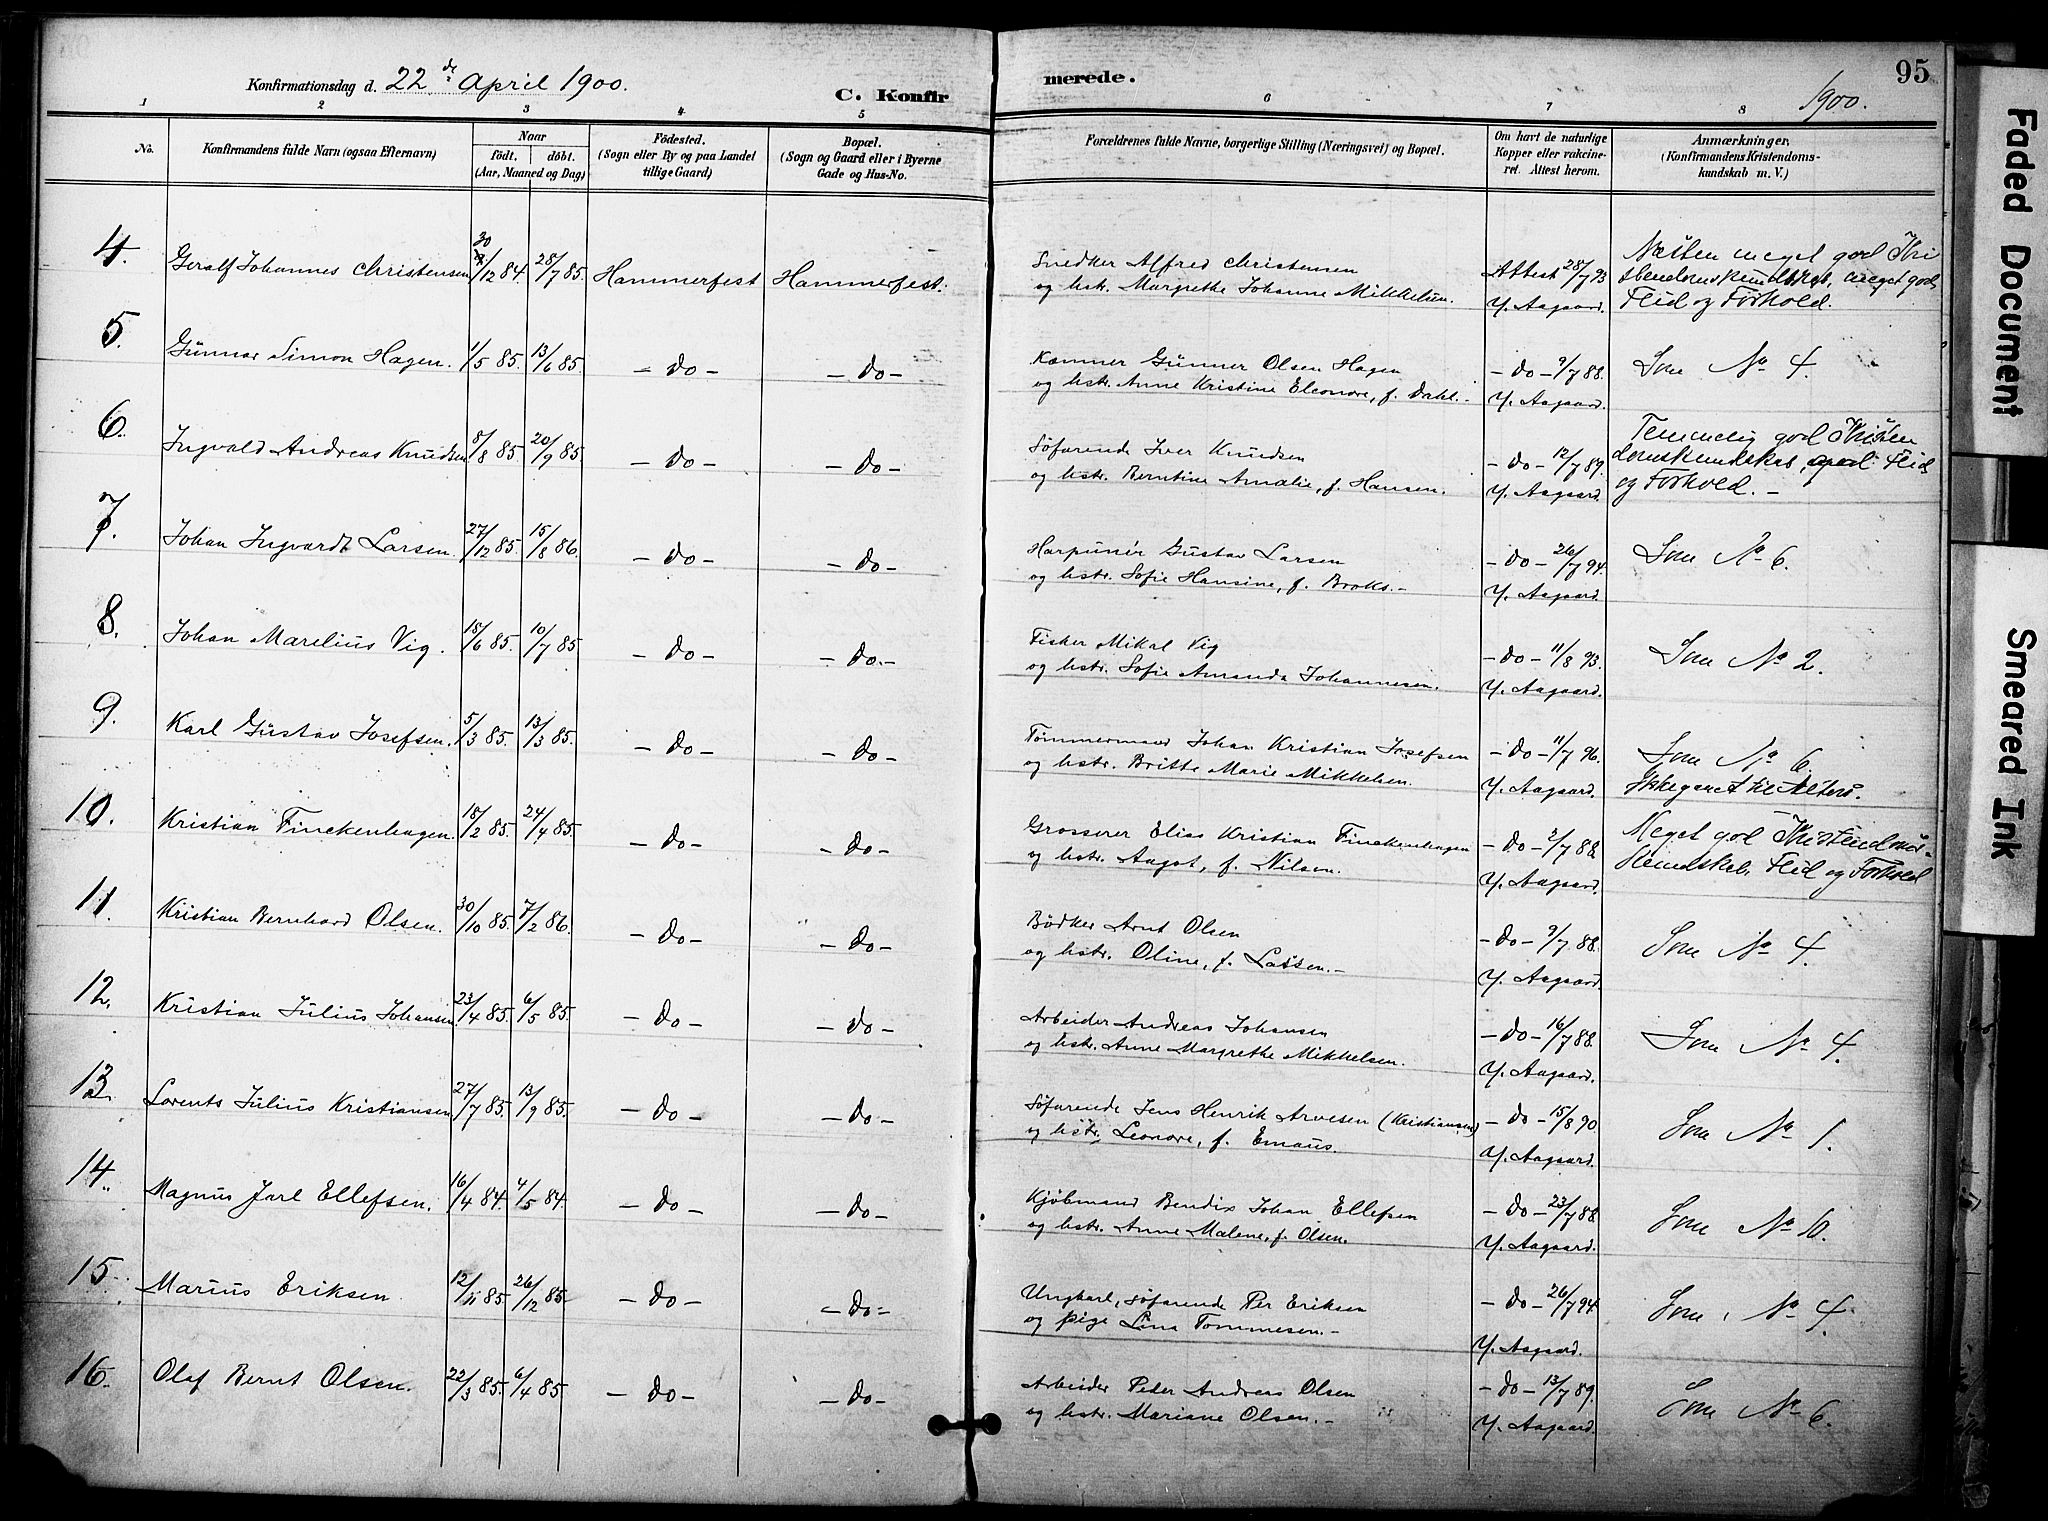 Konfirmationsdag d. 22de April 1900.
C. Konfirmerede.
95
1900.
1 2 3 4 5 6 7 8
No.
Konfirmandens fulde Navn (ogsaa Efternavn)
Naar
födt. döbt.
(Aar, Maaned og Dag)
Födested.
(Sogn eller By og paa Landet
tillige Gaard)
Bopæl.
(Sogn og Gaard eller i Byerne
Gade og Hus-No.
Forældrenes fulde Navne, borgerlige Stilling (Næringsvei) og Bopæl.
Om havt de naturlige
Kopper eller vakcine-
ret. Attest herom.
Anmærkninger.
(Konfirmandens Kristendoms-
kundskab m. V.)
4. Geralf Johannes Christensen 30/12 84. 28/7 85. Hammerfest Hammerfest. Snedker Alfred Christensen
og hstr. Margrethe Johanne Mikkelsen.
Attest 28/7 93
Y. Aagaard.
Næsten meget god Khri
stendomskundskab, meget god
Flid og Forhold.
5. Gunnar Simon Hagen. 1/5 85. 13/6 85. - do - - do - Kæmner Gunner Olsen Hagen
og hstr. Anne Kristine Eleonore, f. Dahl.
- do - 9/7 88.
Y. Aagaard.
Som No 4.
6. Ingvald Andreas Knudsen 8/8 85. 20/9 85. - do - - do - Søfarende Iver Knudsen
og hstr. Berntine Amalie, f. Hansen.
- do - 12/7 89.
Y. Aagaard.
Temmelig god Khristen
domskundskab, god Flid
og Forhold. -
7. Johan Ingvardt Larsen. 27/12 85. 15/8 86. - do - - do - Harpunér Gustav Larsen
og hstr. Sofie Hansine, f. Broks. -
- do - 26/7 94.
Y. Aagaard.
Som No 6.
8. Johan Marelius Vig. 18/6 85. 10/7 85 - do - - do. - Fisker Mikal Vig
og hstr. Sofie Amanda Johannesen.
- do - 11/8 93.
Y. Aagaard.
Som No 2.
9. Karl Gustav Josefsen. 5/3 85. 13/3 85. - do - - do - Tømmermand Johan Kristian Josefsen
og hstr. Britte Marie Mikkelsen.
- do - 11/7 96.
Y. Aagaard.
Som No 6.
Ikke gaaet til Alters.
10. Kristian Finckenhagen. 18/2 85. 24/4 85. - do - - do - Grosserer Elias Kristian Finckenhagen
og hstr. Aagot, f. Nilsen.
- do - 2/7 88.
Y. Aagaard.
Meget god Khristendoms-
kundskab, Flid og Forhold
11. Kristian Bernhard Olsen. 30/10 85. 7/2 86. - do - - do - Bødker Arnt Olsen
og hstr. Oline, f. Lassen. -
- do - 9/7 88.
Y. Aagaard.
Som No 4.
12. Kristian Julius Johansen. 23/4 85. 6/5 85. - do - - do - Arbeider Andreas Johansen
og hstr. Anne Margrethe Mikkelsen.
- do - 16/7 88.
Y. Aagaard.
Som No 4.
13. Lorents Julius Kristiansen 27/7 85. 13/9 85. - do - - do - Søfarende Jens Henrik Arvesen (Kristiansen)
og hstr. Leonore, f. Emaus.
- do - 15/8 90.
Y. Aagaard.
Som No 1.
14. Magnus Jarl Ellefsen. 16/4 84. 4/5 84. - do - - do - Kjøbmand Bendix Johan Ellefsen
og hstr. Anne Malene, f. Olsen.
- do - 23/7 88.
Y. Aagaard.
Som No 10.
15. Marius Eriksen. 12/11 85. 26/12 85. - do - - do - Ungkarl, søfarende Per Eriksen
og pige Lina Tommesen. -
- do - 26/7 94.
Y. Aagaard.
Som No 4.
16. Olaf Bernt Olsen. 22/3 85. 6/4 85. - do - - do - Arbeider Peder Andreas Olsen
og hstr. Mariane Olsen. -
- do - 13/7 89.
Y. Aagaard.
Som No 6.
Faded Document
Smeared Ink